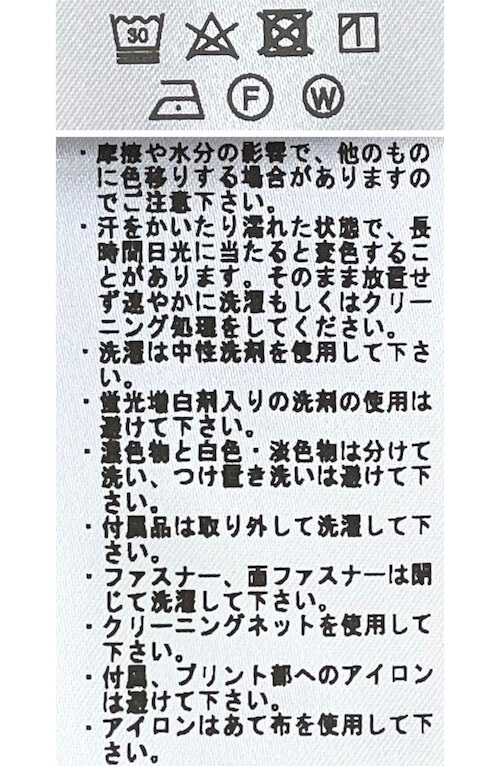 30
F W
・摩擦や水分の影響で、他のもの
に色移りする場合がありますの
でご注意下さい。
・汗をかいたり濡れた状態で、長
時間日光に当たると変色するこ
とがあります。そのまま放置せ
ず速やかに洗濯もしくはクリー
ニング処理をしてください。
・洗濯は中性洗剤を使用して下さ
い。
・蛍光増白剤入りの洗剤の使用は
避けて下さい。
・濃色物と白色・淡色物は分けて
洗い、つけ置き洗いは避けて下
さい。
・付属品は取り外して洗濯して下
さい。
・ファスナー、面ファスナーは閉
じて洗濯して下さい。
・クリーニングネットを使用して
下さい。
・付属、プリント部へのアイロン
は避けて下さい。
・アイロンはあて布を使用して下
さい。